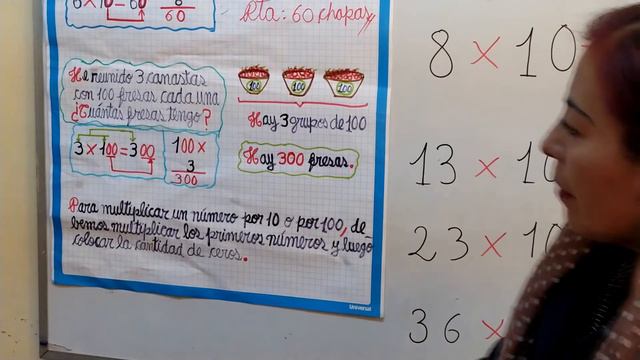 6 × 10 = 60
6
60
Rta: 60 chapas
He reunido 3 canastas
con 100 fresas cada una
¿Cuántas fresas tengo?
100 100 100
Hay 3 grupos de 100
3 × 100 = 300
100 ×
3
300
Hay 300 fresas.
Para multiplicar un número por 10 o por 100, de-
bemos multiplicar los primeros números y luego
colocar la cantidad de ceros.
Universal
8 × 10
13 × 10
23 × 10
36 ×